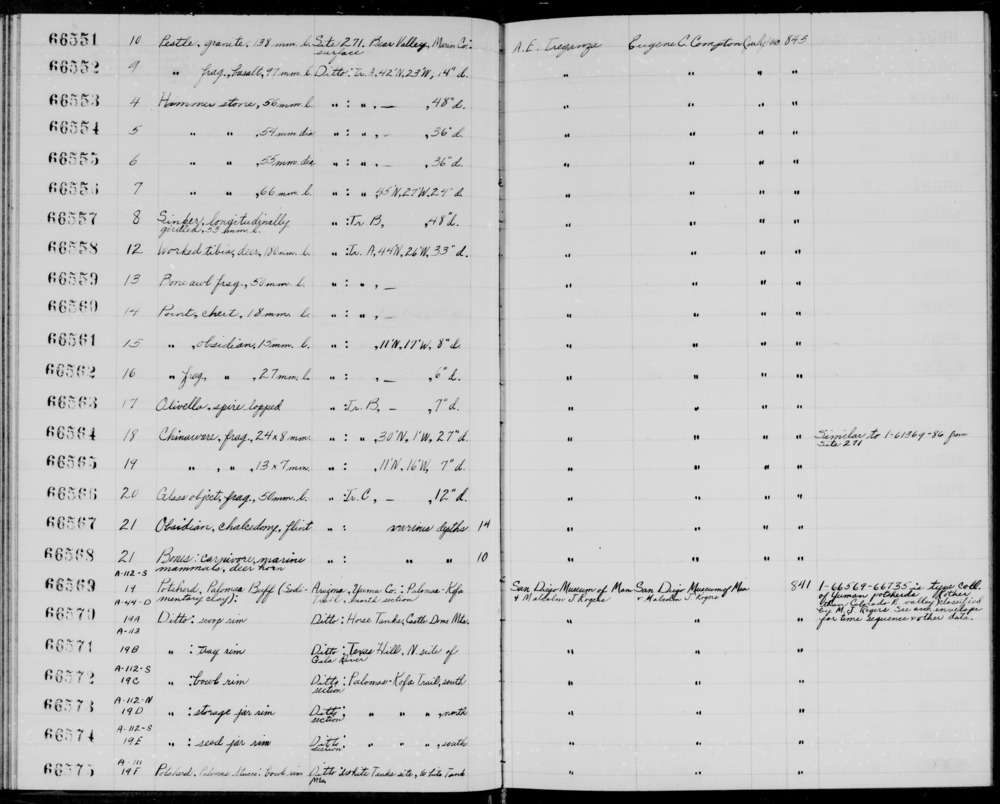 66551 10 Pestle, granite, 138 mm. l. Site 271. Bear Valley, Marin Co: surface A. E. Treganza Eugene C. Compton 843
66552 9 " frag., basalt, 97 mm. l. Ditto: Tr. A, 42'N, 23'W, 14" d. " " " "
66553 4 Hammer stone, 56 mm. l. " : " , — , 48" d. " " " "
66554 5 " " , 54 mm dia " : " , — , 36" d. " " " "
66555 6 " " , 55 mm dia " : " , — , 36" d. " " " "
66556 7 " " , 66 mm. l. " : " , 45'N, 27'W, 24" d. " " " "
66557 8 Sinker, longitudinally " : Tr. B, , 48" d. " " " "
girdled, 53 mm. l.
66558 12 Worked tibia, deer, 180 mm. l. " : Tr. A, 44'N, 26'W, 33" d. " " " "
66559 13 Bone awl frag., 50 mm. l. " : " , — " " " "
66560 14 Point, chert, 18 mm. l. " : " , — " " " "
66561 15 " , obsidian, 15 mm. l. " : , 11'N, 17'W, 8" d. " " " "
66562 16 " frag, " , 27 mm. l. " : , — , 6" d. " " " "
66563 17 Olivella, spire lopped " : Tr. B, — , 7" d. " " " "
66564 18 Chinaware, frag., 24 x 8 mm. " : " , 30'N, 1'W, 27" d. " " " " Similar to 1-61369-86 from
Site 271
66565 19 " , " , 13 x 7 mm. " : , 11'N, 16'W, 7" d. " " " "
66566 20 Glass object, frag., 50 mm. l. " Tr. C, — , 12" d. " " " "
66567 21 Obsidian, chalcedony, flint " : various depths 14 " " " "
66568 21 Bones: carnivore, marine " : " " 10 " " " "
mammals, deer horn
A-112-S
66569 19 Potsherd, Palomas Buff (Sedi- Arizona, Yuma Co.: Palomas-Kofa San Diego Museum of Man San Diego Museum of Man 841 1-66569-66735 is type coll.
mentary clay): Trail, north section & Malcolm J. Rogers & Malcolm J. Rogers of Yuman potsherds & other
A-44-D
66570 19A Ditto: scoop rim Ditto: Horse Tanks, Castle Dome Mts. " " " Colorado R. valley classified
by M. J. Rogers. See envelope
for time sequence & other data.
A-113
66571 19B " : tray rim Ditto: Texas Hill, N. side of " " "
Gila River
A-112-S
66572 19C " : bowl rim Ditto: Palomas-Kofa Trail, south " " "
section
A-112-N
66573 19D " : storage jar rim Ditto: " " " , north " " "
section
A-112-S
66574 19E " : seed jar rim Ditto: " " " , south " " "
section
A-111
66575 19F Potsherd, Palomas Stucco: bowl rim Ditto: White Tanks site, White Tank " " "
Mts.